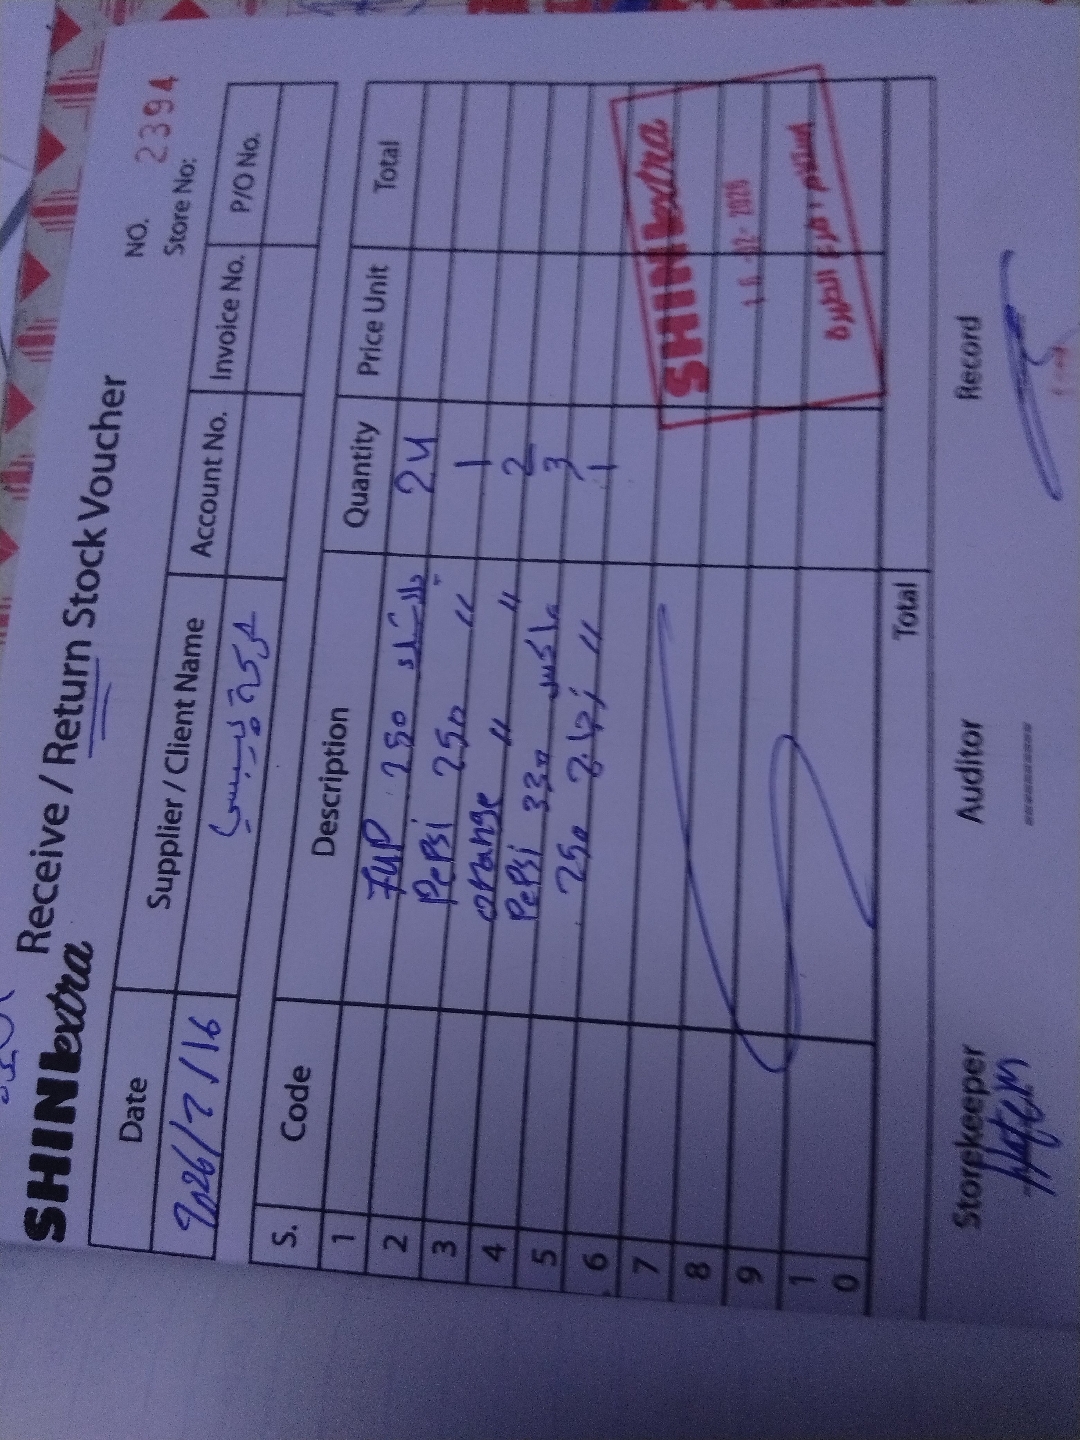 SHINE extra Receive / Return Stock Voucher
NO. 2394
Store No:
Date Supplier / Client Name Account No. Invoice No. P/O No.
2026/2/16 شركة بيبسي
S. Code Description Quantity Price Unit Total
1 7UP 250 بلاستك 24
2 Pepsi 250 " 1
3 orange " " 2
4 Pepsi 330 3
5 250 " 1
6
7
8
9
10
Total
SHINE extra
16-02-2026
استلام : فرع
Storekeeper Auditor Record
Hatem